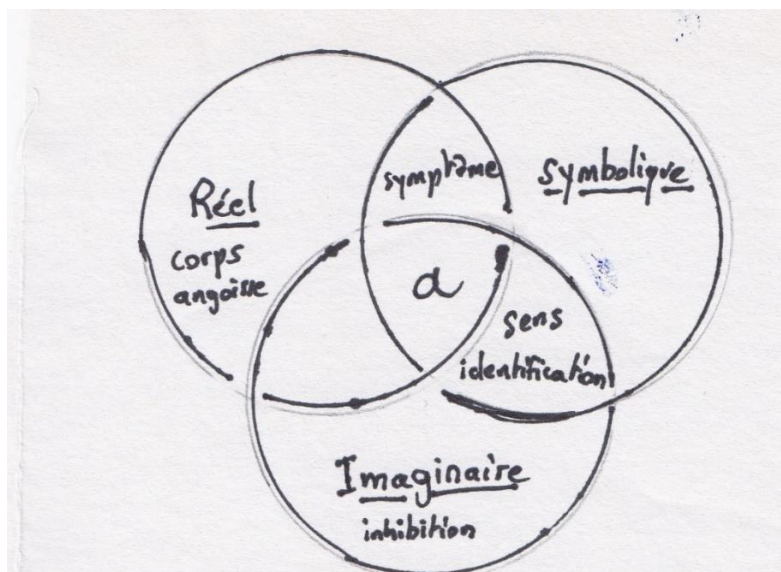 Réel
corps
angoisse
symptôme
symbolique
a
sens
identification
Imaginaire
inhibition